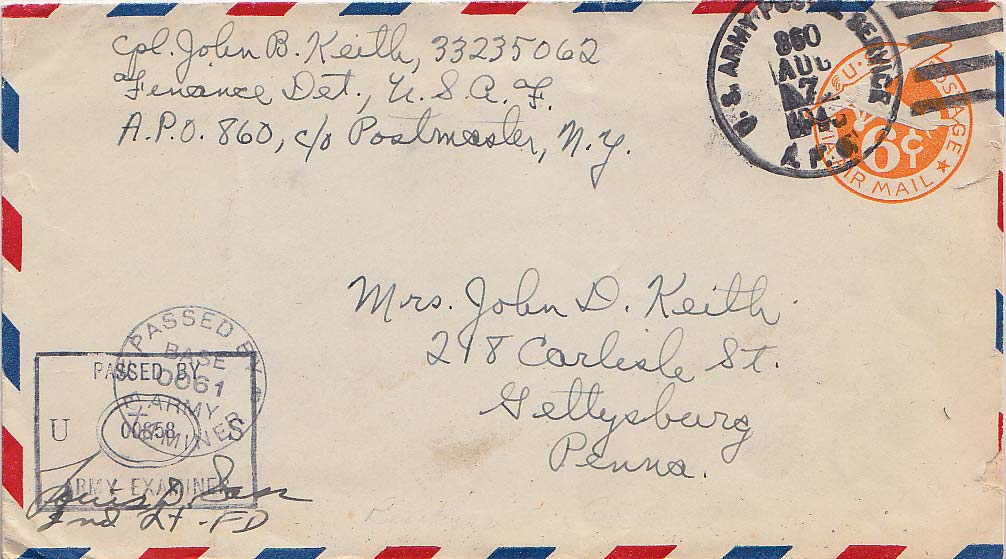 Cpl. John B. Keith, 33235062
Finance Det., U.S.A.F.
A.P.O. 860, c/o Postmaster, N.Y.
U.S. ARMY POSTAL SERVICE
860
AUG
7
A.P.O.
U.S. POSTAGE
6¢
VIA AIR MAIL
Mrs. John D. Keith
218 Carlisle St.
Gettysburg
Penna.
PASSED BY
BASE
0061
ARMY
EXAMINER
PASSED BY
U S
00858
ARMY EXAMINER
Louis D.
2nd Lt - FD